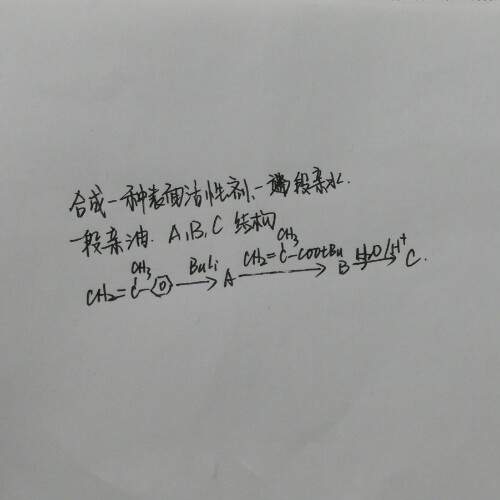 合成一种表面活性剂、一段亲水.
一段亲油. A,B,C 结构
CH3 CH3
CH2=C- BuLi → A CH2=C-COOtBu → B H2O/H+ → C.